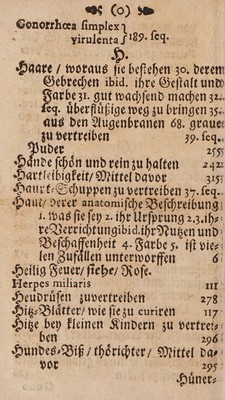 (o)
Gonorrhœa simplex
virulenta } 189. seq.
H.
Haare / woraus sie bestehen 30. derem
Gebrechen ibid. ihre Gestalt und
Farbe 31. gut wachsend machen 32.
seq. überflüßige weg zu bringen 35.
aus den Augenbranen 68. graue
zu vertreiben 39. seq.
Puder 255
Hände schön und rein zu halten 242
Hartleibigkeit / Mittel davor 315
Haupt-Schuppen zu vertreiben 37. seq.
Haut / derer anatomische Beschreibung
1. was sie sey 2. ihr Ursprung 2.3. ih=
re Verrichtung ibid. ihr Nutzen und
Beschaffenheit 4. Farbe 5. ist vie=
len Zufällen unterworffen 6
Heilig Feuer / siehe / Rose.
Herpes miliaris 111
Heudrüsen zuvertreiben 278
Hitz-Blätter / wie sie zu curiren 117
Hitze bey kleinen Kindern zu vertrei=
ben 296
Hundes-Biß / thörichter / Mittel da=
vor 295
Hüner=